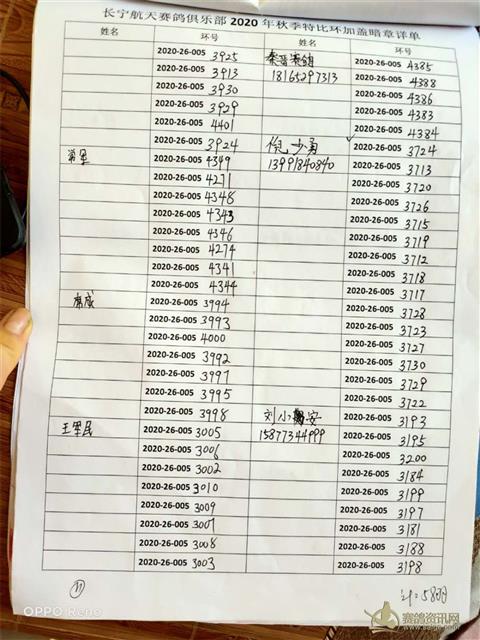 长宁航天赛鸽俱乐部 2020 年秋季特比环加盖暗章详单
姓名 环号 姓名 环号
2020-26-005 3925 秦晋赛鸽 2020-26-005 4385
2020-26-005 3913 18165297313 2020-26-005 4388
2020-26-005 3930 2020-26-005 4386
2020-26-005 3929 2020-26-005 4383
2020-26-005 4401 2020-26-005 4384
2020-26-005 3924 倪少勇 2020-26-005 3724
2020-26-005 4349 13991840840 2020-26-005 3713
2020-26-005 4271 2020-26-005 3720
2020-26-005 4348 2020-26-005 3726
2020-26-005 4343 2020-26-005 3715
2020-26-005 4346 2020-26-005 3719
2020-26-005 4274 2020-26-005 3712
2020-26-005 4341 2020-26-005 3718
2020-26-005 4344 2020-26-005 3717
席成 2020-26-005 3994 2020-26-005 3728
2020-26-005 3993 2020-26-005 3723
2020-26-005 4000 2020-26-005 3727
2020-26-005 3992 2020-26-005 3730
2020-26-005 3997 2020-26-005 3729
2020-26-005 3995 2020-26-005 3722
2020-26-005 3998 刘小安 2020-26-005 3193
王军民 2020-26-005 3005 15877344999 2020-26-005 3195
2020-26-005 3006 2020-26-005 3200
2020-26-005 3002 2020-26-005 3184
2020-26-005 3010 2020-26-005 3199
2020-26-005 3009 2020-26-005 3197
2020-26-005 3007 2020-26-005 3181
2020-26-005 3008 2020-26-005 3188
2020-26-005 3003 2020-26-005 3198
11
OPPO Reno
赛鸽资讯网